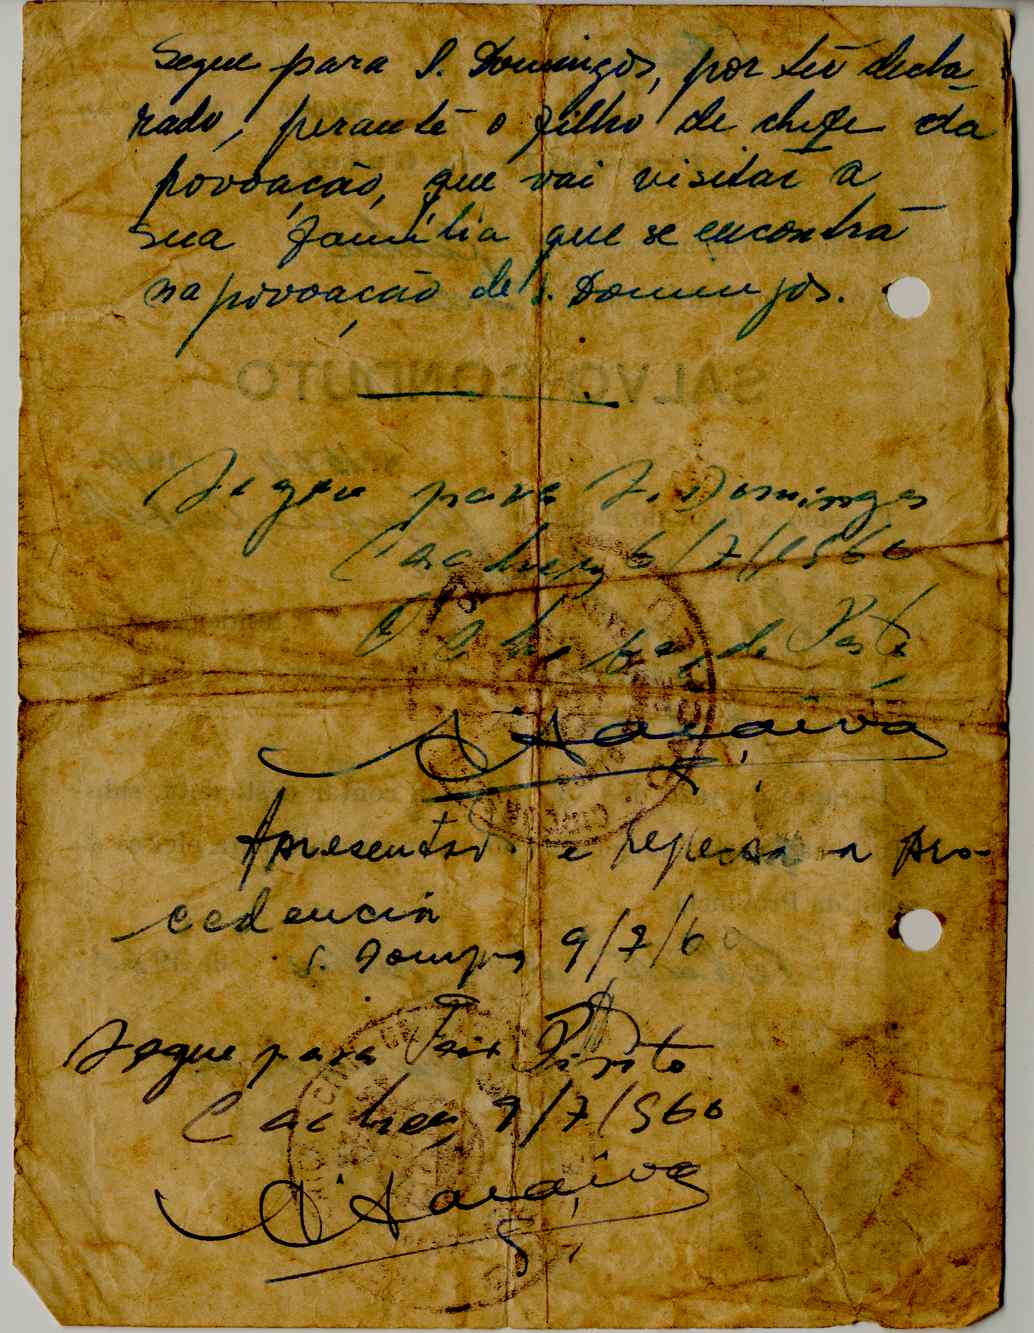 Segue para S. Domingos, por ter decla
rado, perante o filho de chefe da
povoação, que vai visitar a
sua família que se encontra
na povoação de S. Domingos.
SALVO-CONDUTO
Segue para S. Domingos
Cacheu, 6/7/1960
O Che de Posto
Apresentado e regressa a pro-
cedencia
S. Domingos 9/7/60
Segue para Teix Pinto
Cacheu, 9/7/960